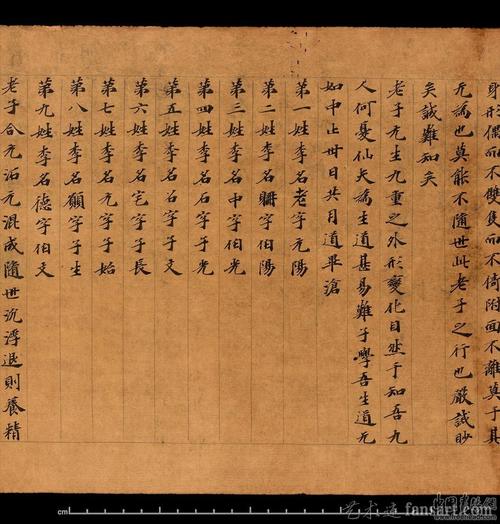 身形偶而不雙隻而不倚附而不離莫于其
无為也莫能不隨世此老子之行也嚴誡眇
矣誠難知矣
老子元生九重之外形變化自然于知吾九
人何憂仙夫為生道甚易難子學吾生道无
如中止卅日共月道畢滄
第一姓李名老字元陽
第二姓李名聃字伯陽
第三姓李名中字伯光
第四姓李名石字子光
第五姓李名石字子文
第六姓李名宅字子長
第七姓李名元字子始
第八姓李名願字子生
第九姓李名德字伯文
老子合元沰元混成隨世沉浮退則養精
cm
fansart.com